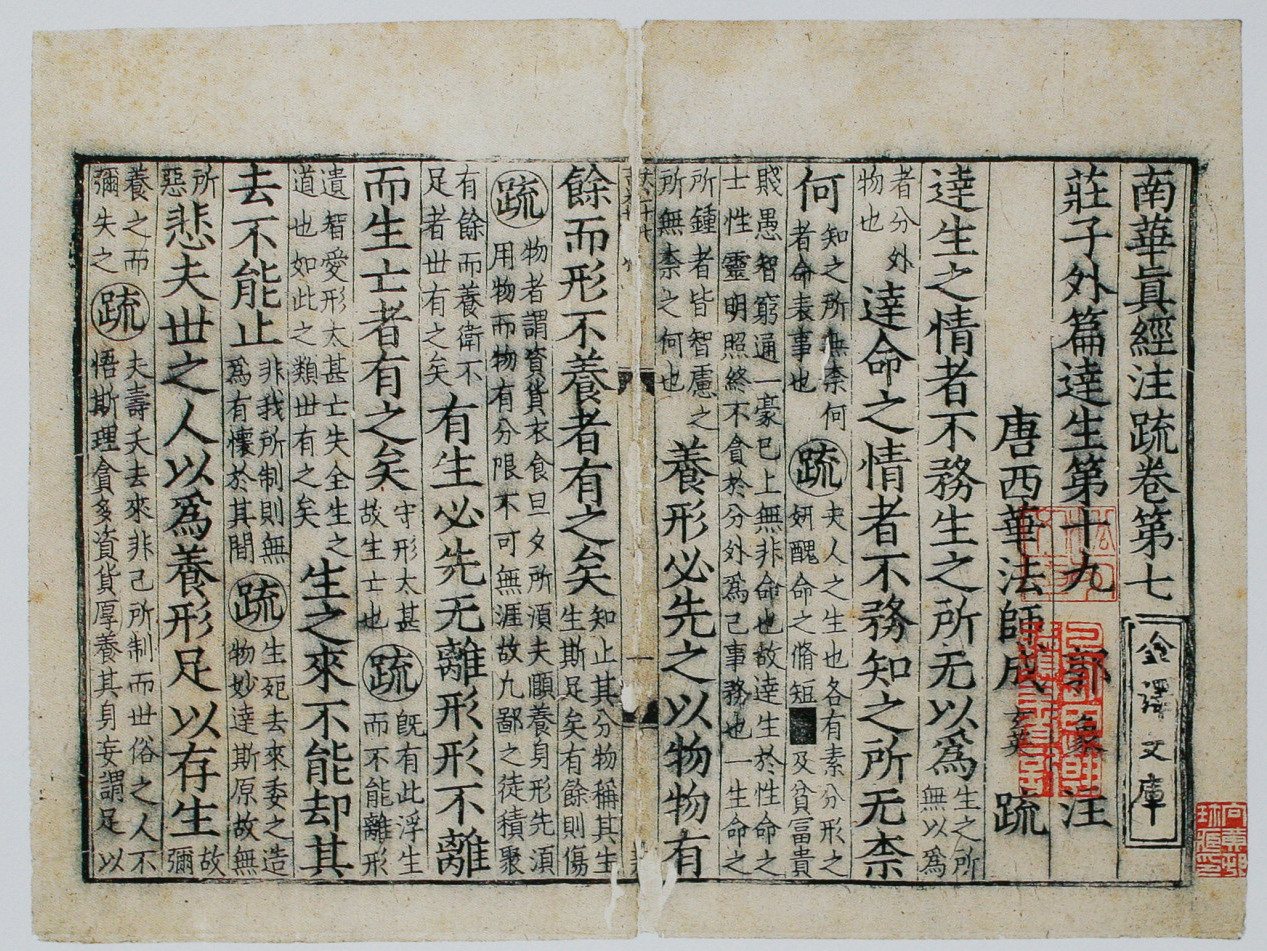 南華眞經注疏卷第七 金澤文庫
莊子外篇達生第十九 郭象注
唐西華法師成玄英疏
達生之情者不務生之所无以爲生之所無以爲
者分外物也達命之情者不務知之所无柰
何知之所無柰何者命表事也疏夫人之生也各有素分形之妍醜命之脩短及貧富貴
賤愚智窮通一豪已上無非命也故達生於性命之士性靈明照終不貪於分外爲己事務也一生命之
所鍾者皆智慮之所無柰之何也養形必先之以物物有
餘而形不養者有之矣知止其分物稱其生生斯足矣有餘則傷
疏物者謂資貨衣食旦夕所湏夫頤養身形先湏用物而物有分限不可無涯故凡鄙之徒積聚
有餘而養衛不足者世有之矣有生必先无離形形不離
而生亡者有之矣守形太甚故生亡也疏既有此浮生而不能離形
遺智愛形太甚亡失全生之道也如此之類世有之矣生之來不能却其
去不能止非我所制則無爲有懷於其間疏生死去來委之造物妙達斯原故無
所惡悲夫世之人以爲養形足以存生故彌
養之而彌失之疏夫壽夭去來非己所制而世俗之人不悟斯理貪多資貨厚養其身妄謂足以